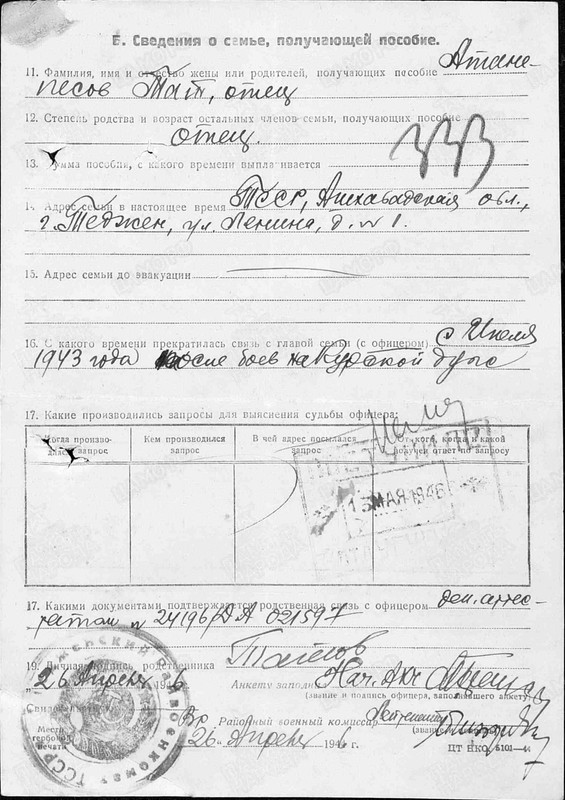 Б. Сведения о семье, получающей пособие.
11. Фамилия, имя и отчество жены или родителей, получающих пособие Атане-
песов Тат, отец
12. Степень родства и возраст остальных членов семьи, получающих пособие
отец.
333
13. Сумма пособия, с какого времени выплачивается
14. Адрес семьи в настоящее время ТССР, Ашхабадская обл.,
г. Теджен, ул. Ленина, д. № 1.
15. Адрес семьи до эвакуации
16. С какого времени прекратилась связь с главой семьи (с офицером) с Июля
1943 года после боев на Курской дуге
17. Какие производились запросы для выяснения судьбы офицера:
Когда производился запрос
Кем производился запрос
В чей адрес посылался запрос
От кого, когда и какой получен ответ по запросу
13 МАЯ 1946
17. Какими документами подтверждается родственная связь с офицером ден. аттес-
татом № 24196/ДА 021597
19. Личная подпись родственника
"26 Апрель 1946
Анкету заполнил Нач.
(звание и подпись офицера, заполнявшего анкету)
Место гербовой печати
Районный военный комиссар Лейтенант
26 Апрель 1946 г.
ЦТ НКО